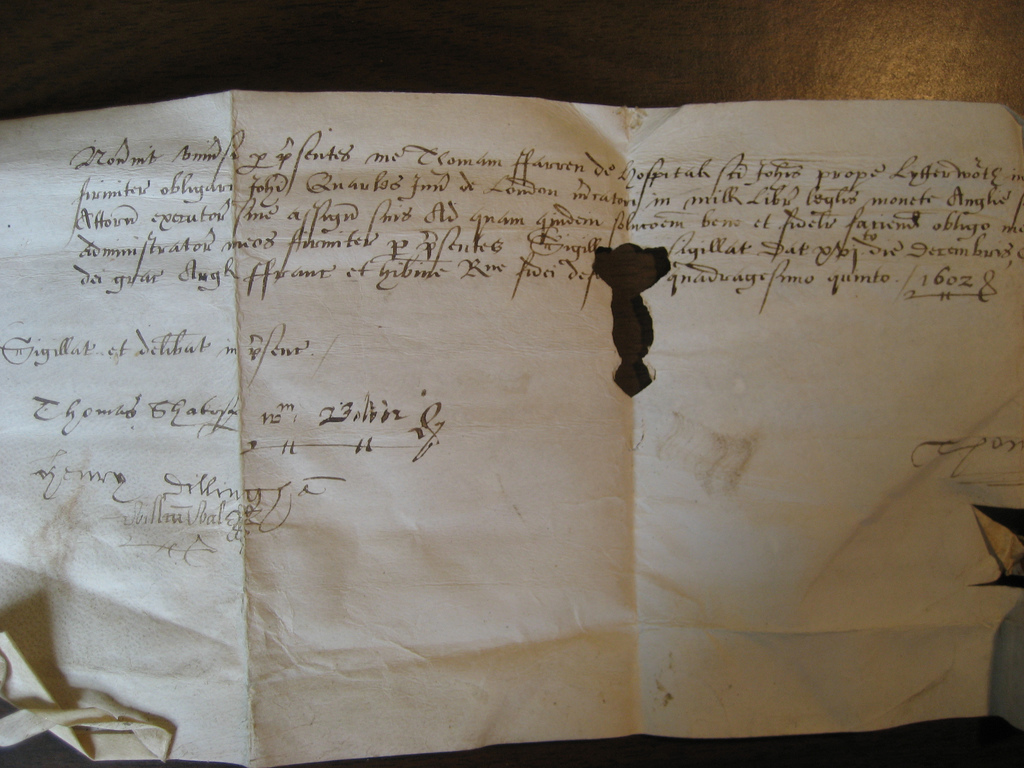 Noverint univsi p psentes me Thomam ffarren de hospitali sci Johis prope Lytterworth in
firmiter obligari Johi Quarles Juni de London mcatori in mille libr leglis monete Anglie
Attorn executor sive assign suis Ad quam quidem soluconem bene et fidelr faciend obligo me
administrator meos firmiter p psentes Sigill Sigillat Dat xxj die Decembris
dei grac Angl ffranc et hibnie Rne fidei def quadragesimo quinto. / 1602
Sigillat et delibat in psenc /
Thomas Wm
Henry Dillingha
Willm
Thom